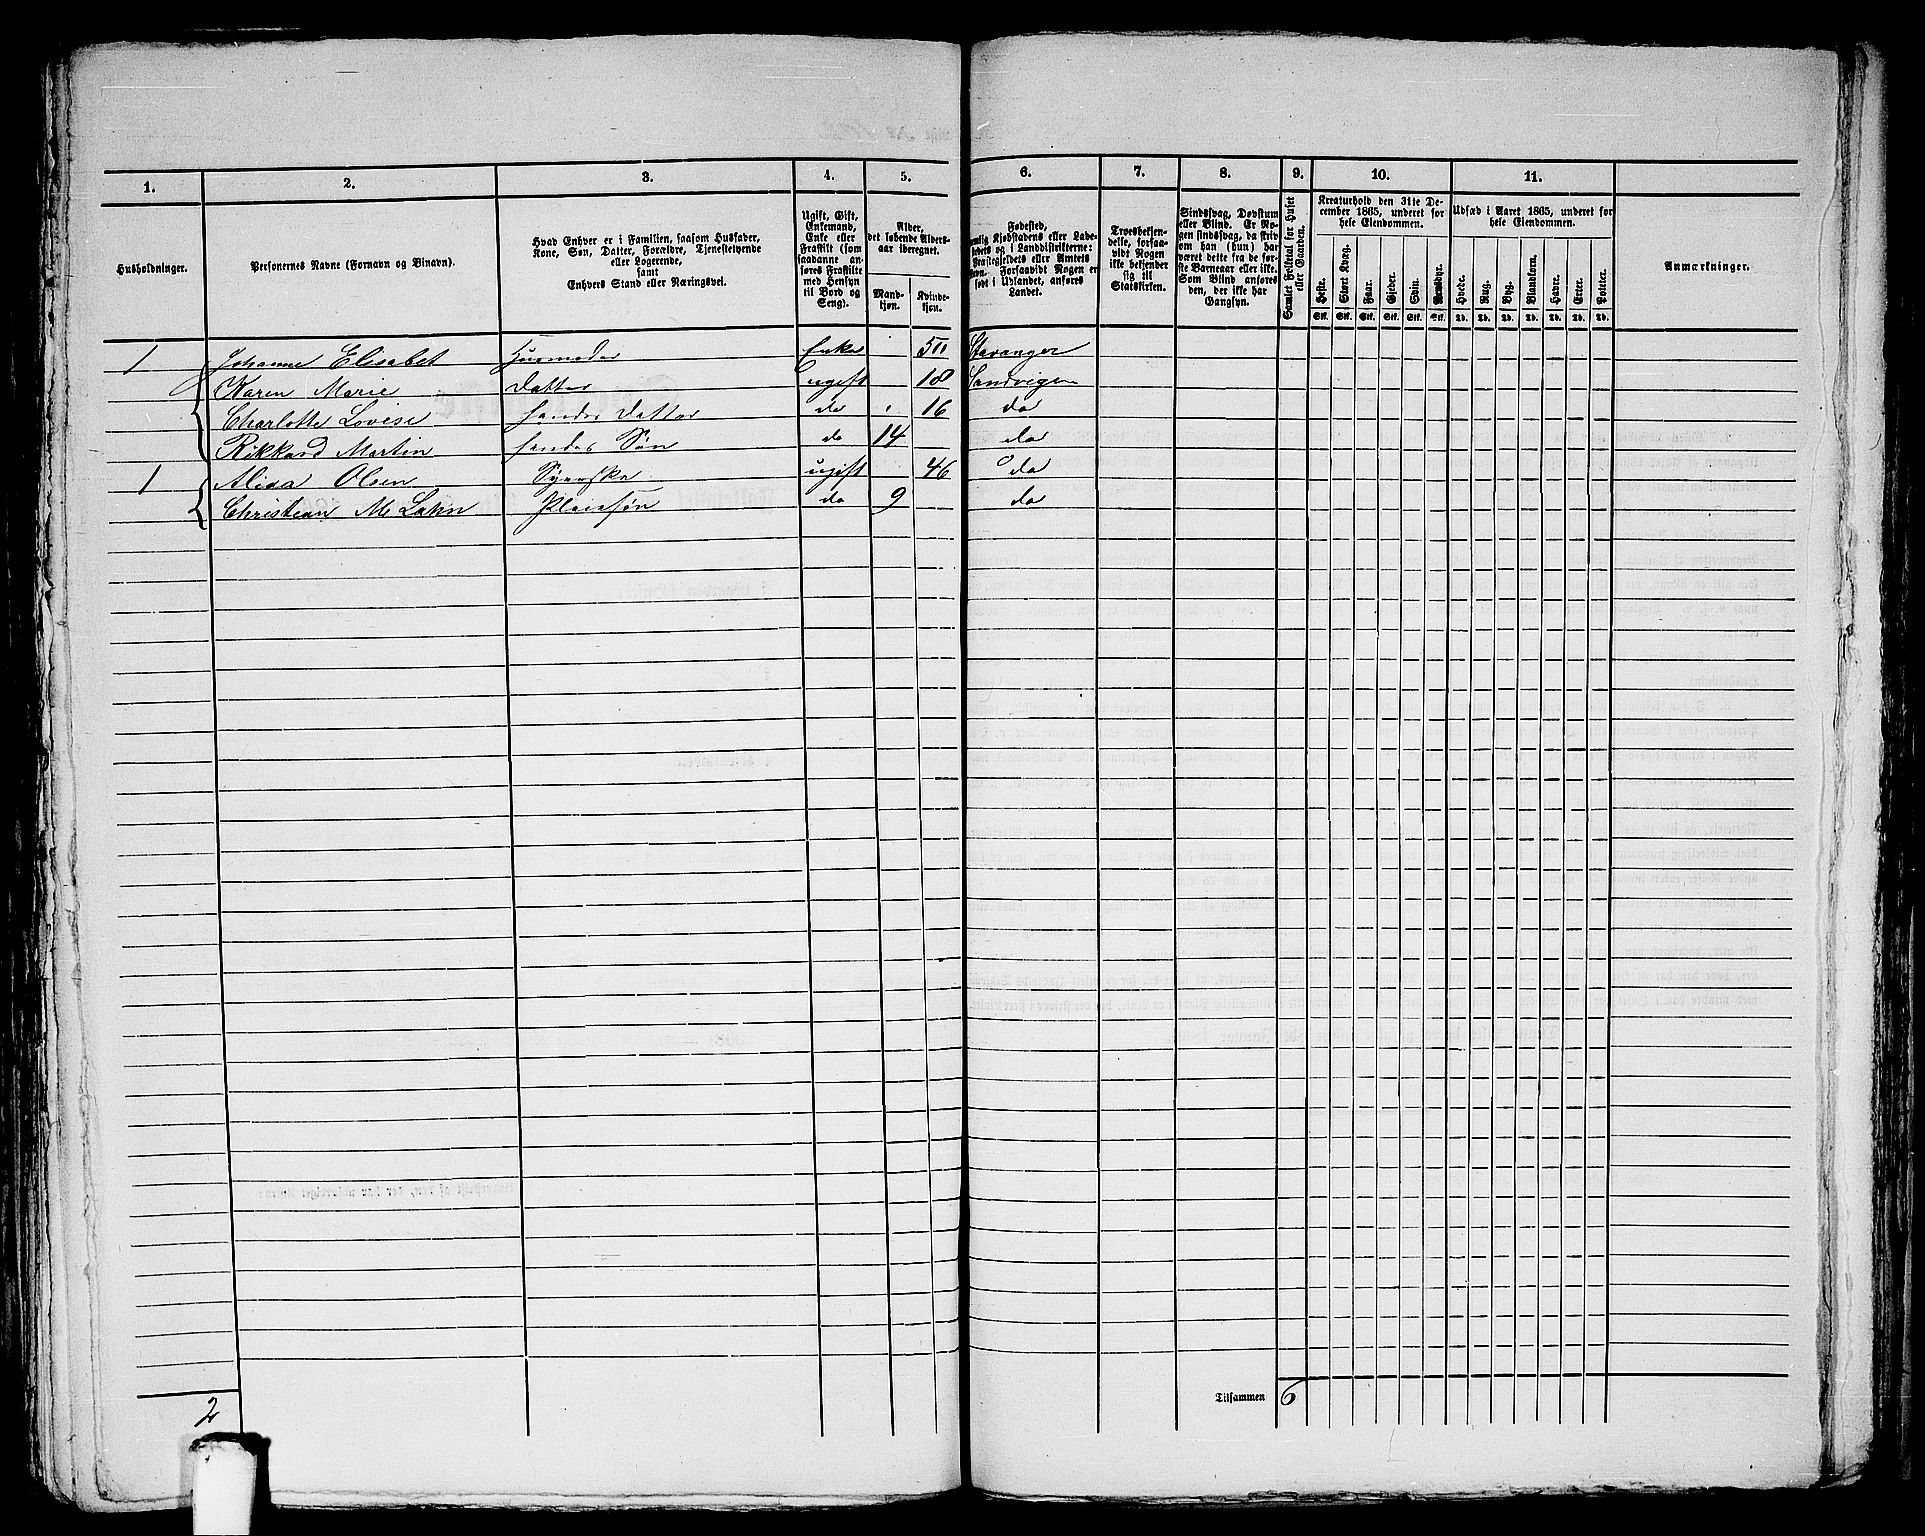 1. 2. 3. 4. 5. 6. 7. 8. 9. 10. 11.
Husholdninger.
Personernes Navne (Fornavn og Binavn).
Hvad Enhver er i Familien, saasom Husfader,
Kone, Søn, Datter, Forældre, Tjenestetyende
eller Logerende,
samt
Enhvers Stand eller Næringsvei.
Ugift, Gift,
Enkemand,
Enke eller
Fraskilt (som
saadanne an-
føres Fraskilte
med Hensyn
til Bord og
Seng).
Alder,
det løbende Alders-
aar iberegnet.
Mand-
kjøn.
Kvinde-
kjøn.
Fødested,
nemlig Kjøbstadens eller Lade-
stedets og i Landdistrikterne:
Præstegjeldets eller Amtets
Navn. Forsaavidt Nogen er
født i Udlandet, anføres
Landet.
Troesbekjen-
delse, forsaa-
vidt Nogen
ikke bekjender
sig til
Statskirken.
Sindssvag, Døvstum
eller Blind. Er No-
gen sindssvag, da skriv
om han (hun) har
været dette fra de før-
ste Barneaar eller ikke.
Som Blind anføres
den, der ikke har
Gangsyn.
Samlet Folketal for Huset
eller Gaarden.
Kreaturhold den 31te De-
cember 1865, underet for
hele Eiendommen.
Heste. Stort Kvæg. Faar. Gjeder. Svin. Rensdyr.
Stk. Stk. Stk. Stk. Stk. Stk.
Udsæd i Aaret 1865, underet for
hele Eiendommen.
Hvede. Rug. Byg. Blandkorn. Havre. Erter. Poteter.
Td. Td. Td. Td. Td. Td. Td.
Anmærkninger.
1 Johanne Elisabet Husmoder Enke Stavanger
Karen Marie Datter ugift 18 Sandvigen
Charlotte Lovise hendes Datter do 16 do
Rikkard Martin hendes Søn do 14 do
1 Alida Olsen Syerske ugift 46 do
Christian M. Lahn Pleiesøn do 9 do
Tilsammen 6
2